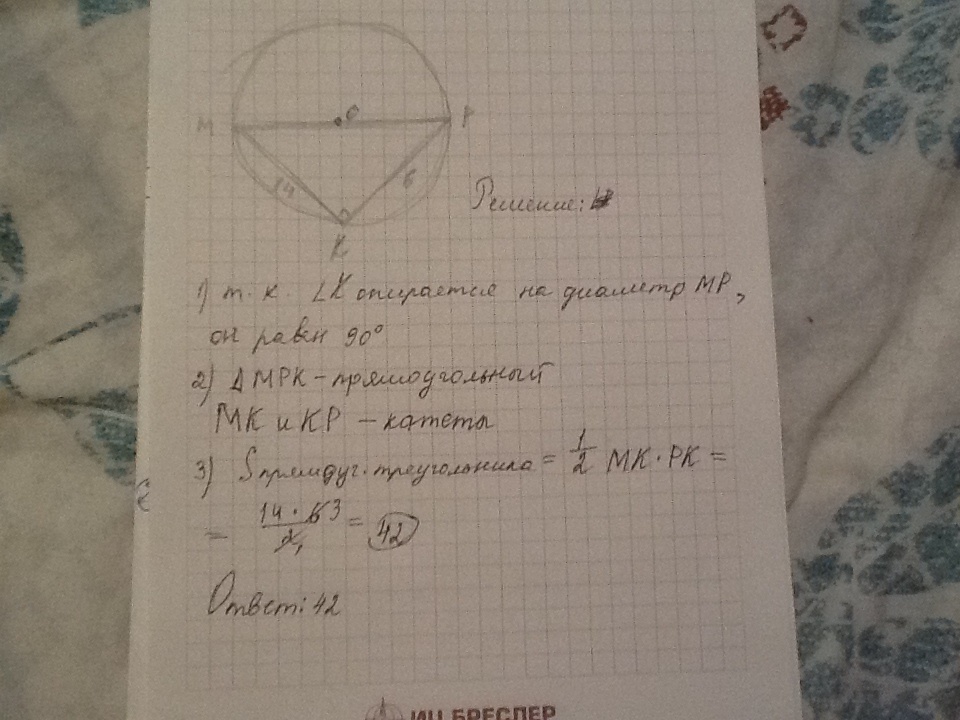 M O P
14 6
K
Решение:
1) т.к. ∠K опирается на диаметр MP,
он равен 90°
2) Δ MPK – прямоугольный
MK и KP – катеты
3) S прямоуг. треугольника = 1/2 MK · PK =
= 14 · 6 3 / 2 1 = 42
Ответ: 42
ИЦ БРЕСЛЕР